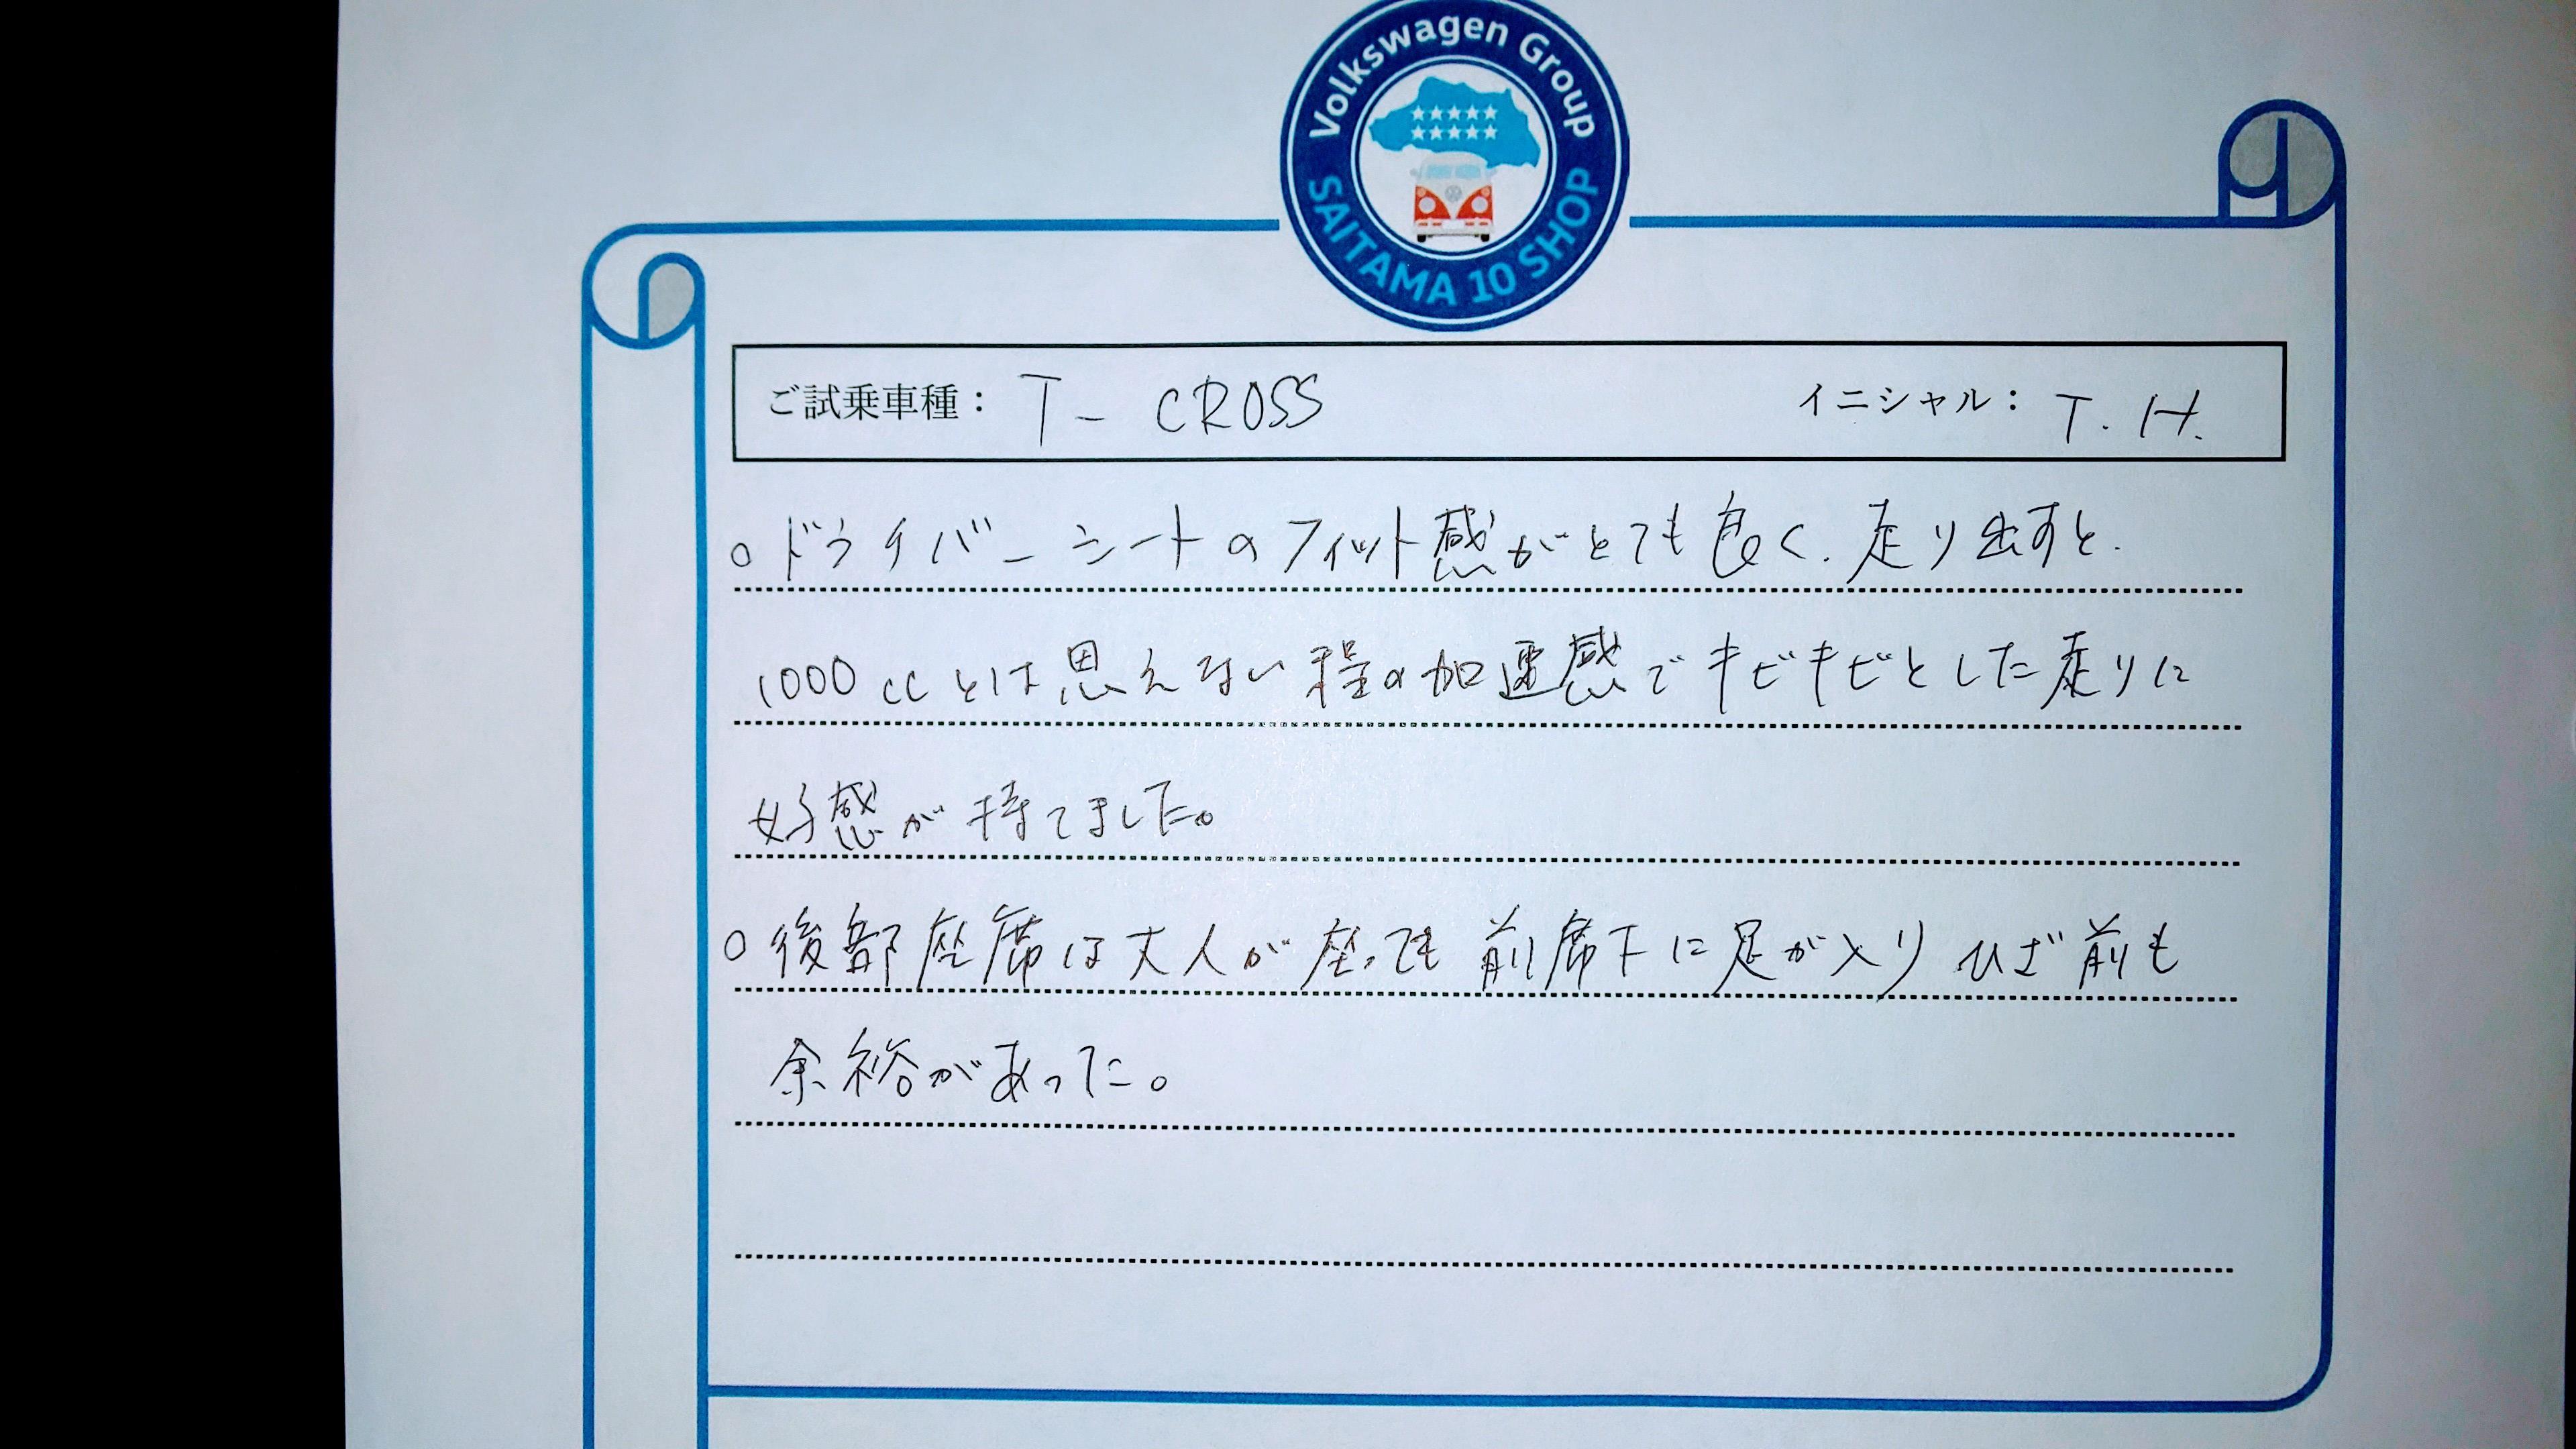 Volkswagen Group
SAITAMA 10 SHOP
ご試乗車種： T-CROSS イニシャル： T.H.
○ドライバーシートのフィット感がとても良く、走り出すと、
1000ccとは思えない程の加速感でキビキビとした走りに
好感が持てました。
○後部座席は大人が座っても前席下に足が入りひざ前も
余裕があった。